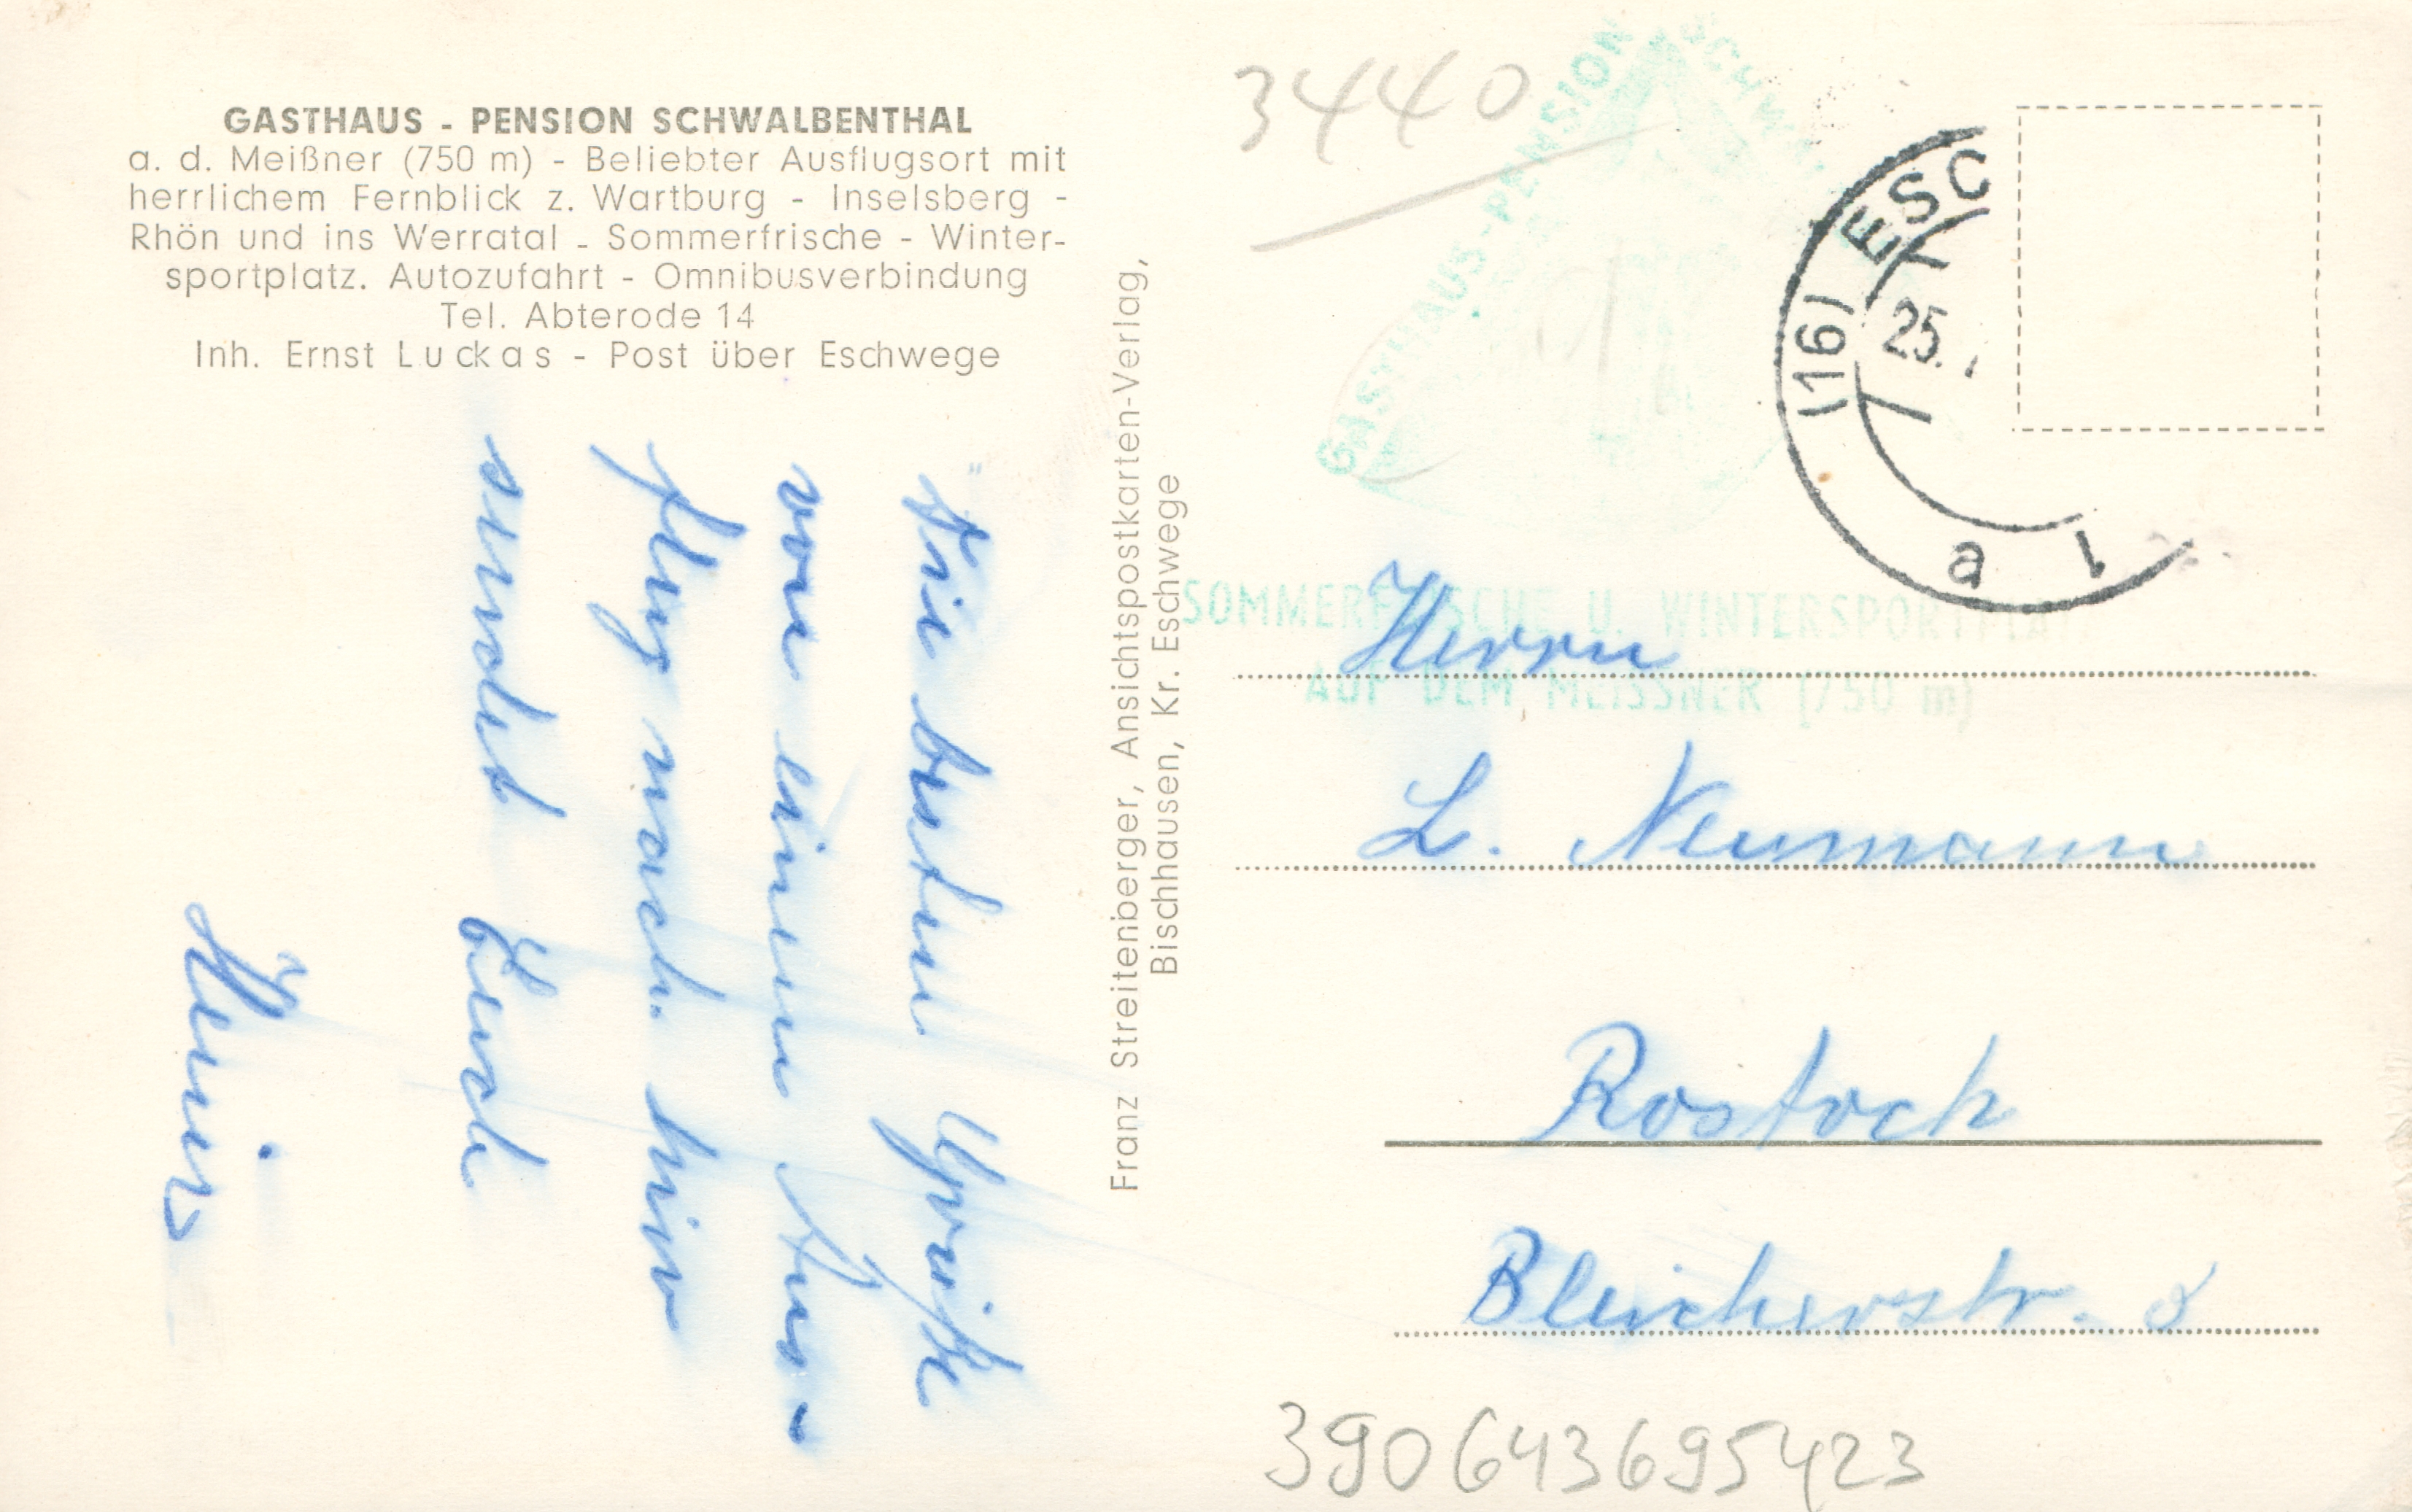 GASTHAUS - PENSION SCHWALBENTHAL
a. d. Meißner (750 m) - Beliebter Ausflugsort mit
herrlichem Fernblick z. Wartburg - Inselsberg -
Rhön und ins Werratal - Sommerfrische - Winter-
sportplatz. Autozufahrt - Omnibusverbindung
Tel. Abterode 14
Inh. Ernst Luckas - Post über Eschwege
Die besten Grüße
von einem Aus-
flug nach hier
sendet Euch
Heinz
Franz Streitenberger, Ansichtspostkarten-Verlag,
Bischhausen, Kr. Eschwege
3440
GASTHAUS - PENSION SCHW
(16) ESC
25.
a 1
SOMMERFRISCHE U. WINTERSPORTPLATZ
AUF DEM MEISSNER (750 m)
Herrn
L. Neumann
Rostock
Bleicherstr. 8
390643695423